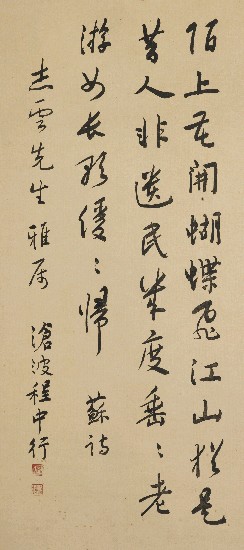 陌上花開蝴蝶飛江山猶是
昔人非遺民幾度垂〻老
游女長歌緩〻歸 蘇詩
志雲先生雅屬 滄波程中行